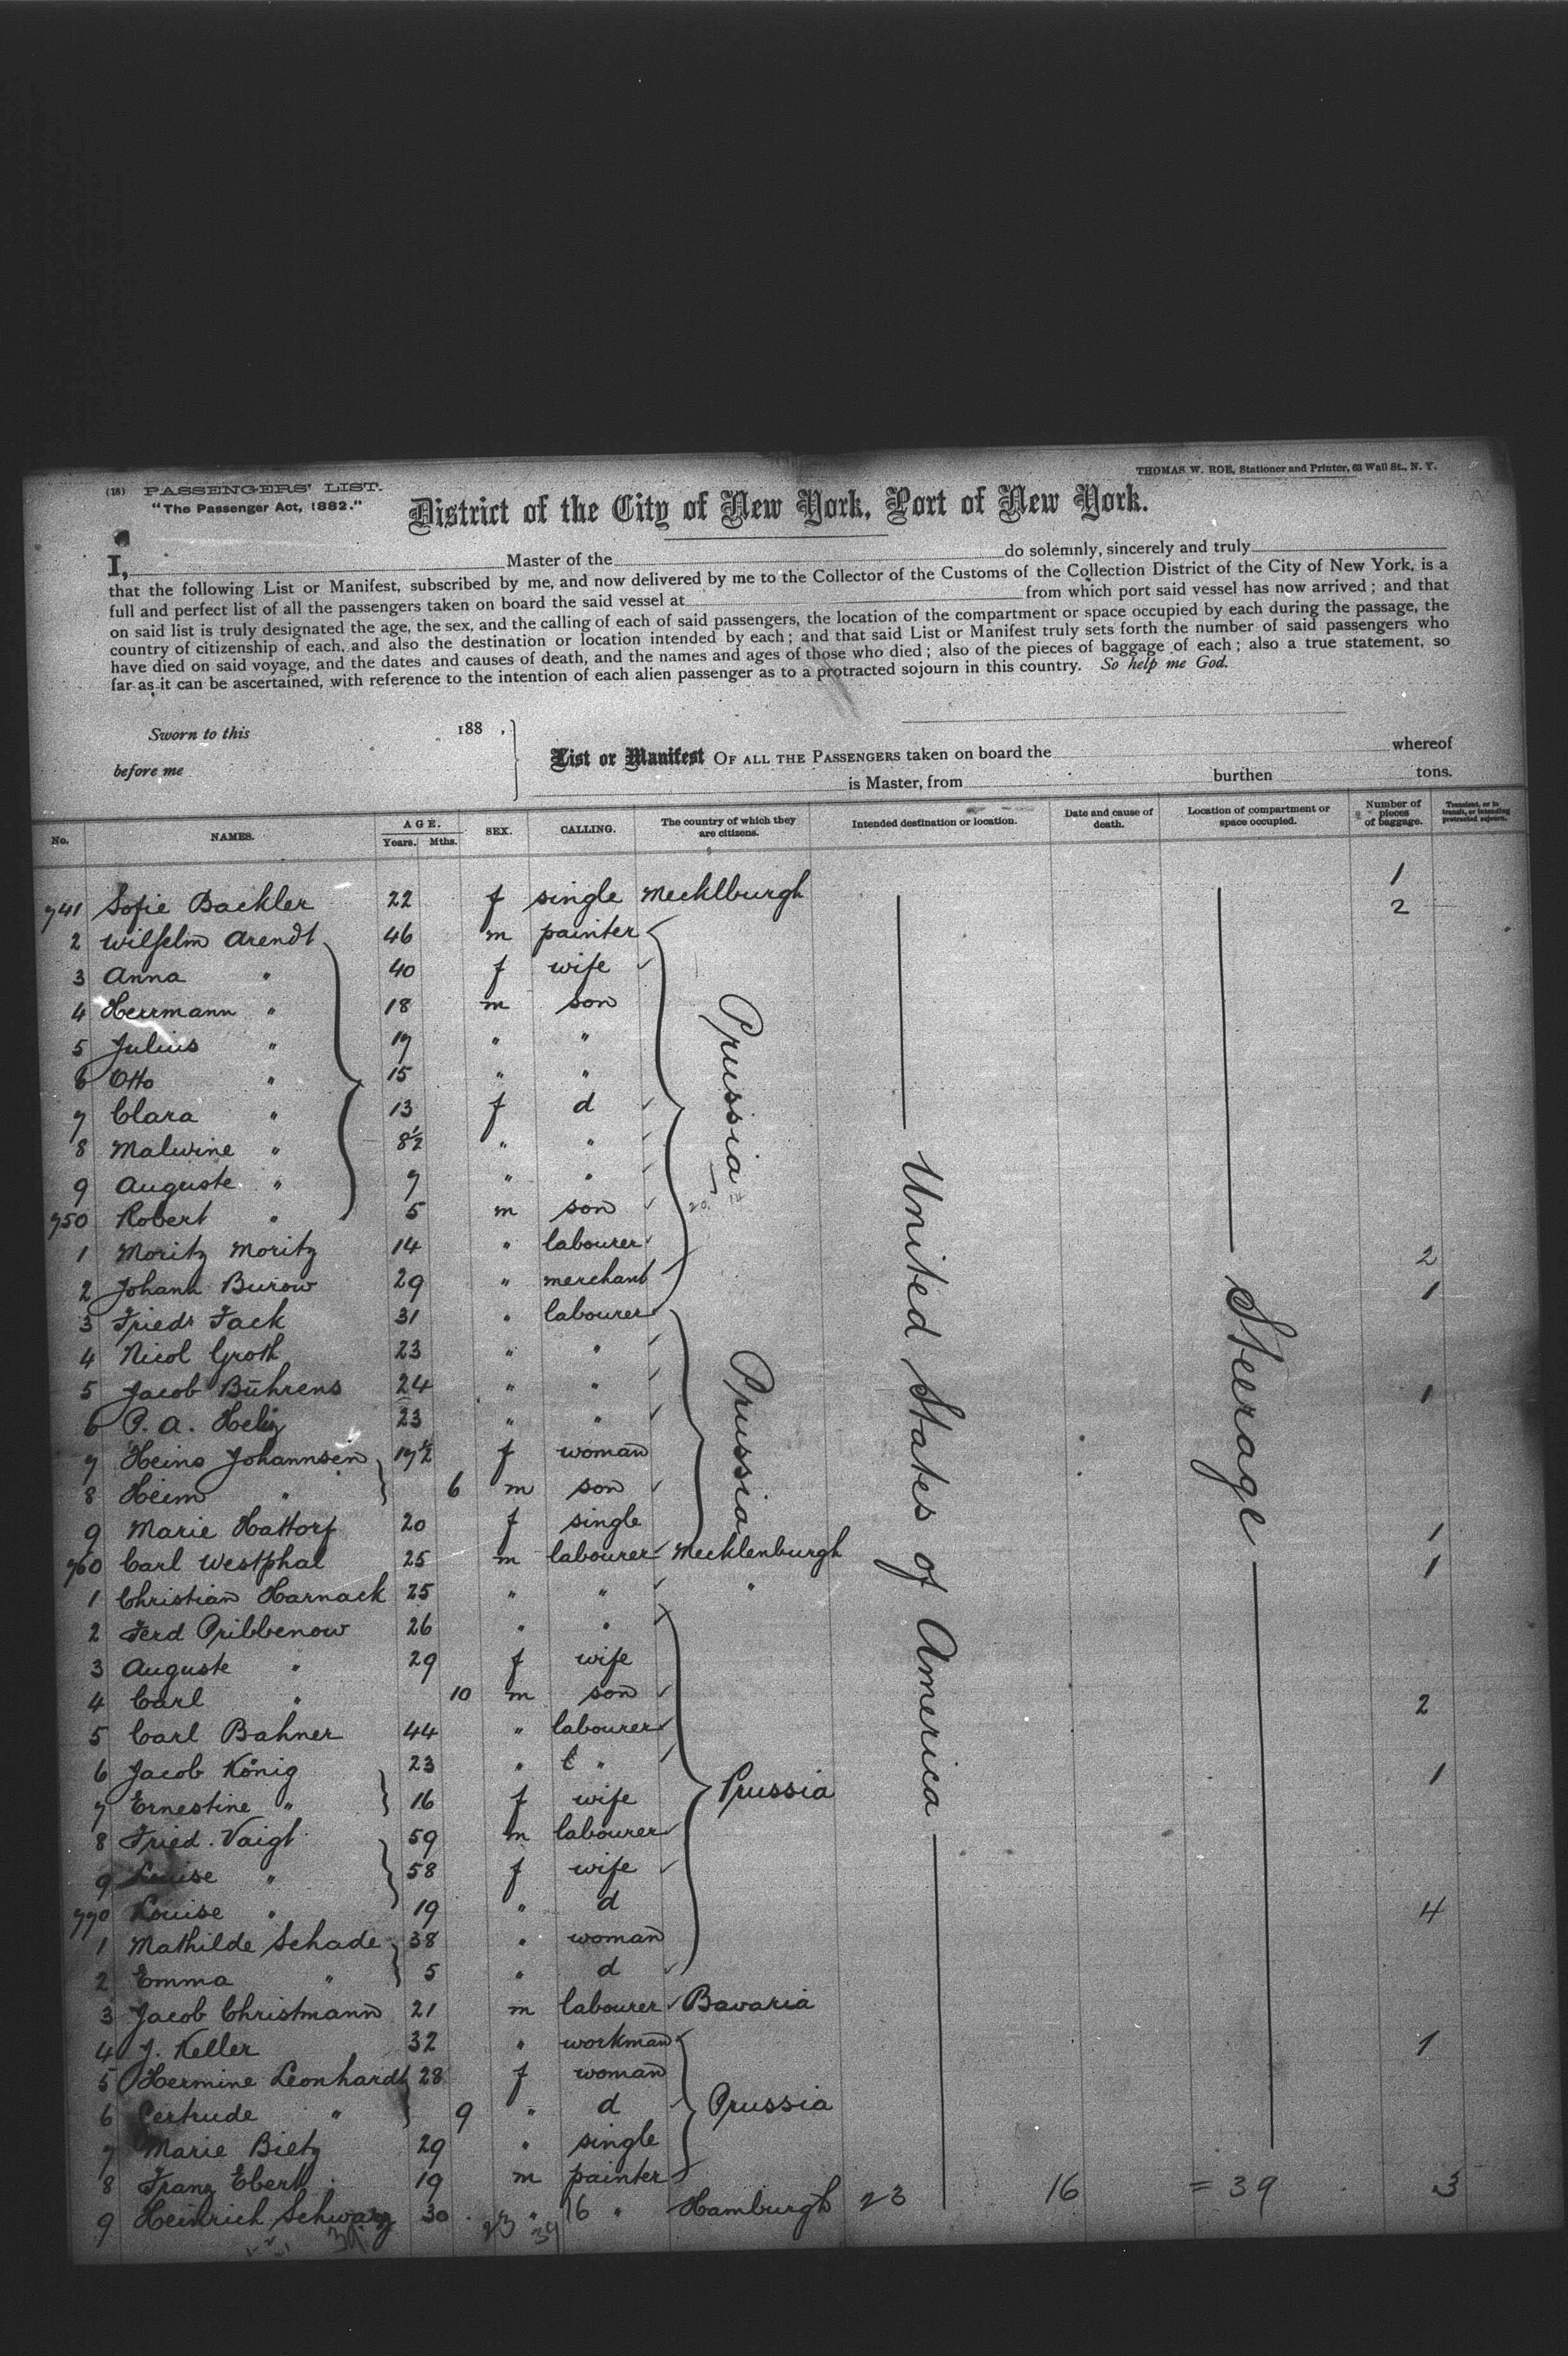 THOMAS W. ROE, Stationer and Printer, 63 Wall St., N. Y.
(18) PASSENGERS' LIST.
"The Passenger Act, 1882."
District of the City of New York, Port of New York.
I, Master of the do solemnly, sincerely and truly
that the following List or Manifest, subscribed by me, and now delivered by me to the Collector of the Customs of the Collection District of the City of New York, is a
full and perfect list of all the passengers taken on board the said vessel at from which port said vessel has now arrived; and that
on said list is truly designated the age, the sex, and the calling of each of said passengers, the location of the compartment or space occupied by each during the passage, the
country of citizenship of each, and also the destination or location intended by each; and that said List or Manifest truly sets forth the number of said passengers who
have died on said voyage, and the dates and causes of death, and the names and ages of those who died; also of the pieces of baggage of each; also a true statement, so
far as it can be ascertained, with reference to the intention of each alien passenger as to a protracted sojourn in this country. So help me God.
Sworn to this 188 ,
before me
List or Manifest OF ALL THE PASSENGERS taken on board the whereof
is Master, from burthen tons.
No. NAMES. AGE. Years. Mths. SEX. CALLING. The country of which they are citizens. Intended destination or location. Date and cause of death. Location of compartment or space occupied. Number of pieces of baggage. Transient, or in transit, or intending protracted sojourn.
1
741 Sofie Backler 22 f single Mecklburgh 2
2 Wilhelm Arendt 46 m painter
3 Anna " 40 f wife
4 Herrmann " 18 m son
5 Julius " 17 " "
6 Otto " 15 " "
7 Clara " 13 f d
8 Malwine " 8½ " "
9 Auguste " 7 " "
750 Robert " 5 m son
Prussia
1 Moritz Moritz 14 " labourer 2
2 Johann Burow 29 " merchant 1
3 Friedr Jack 31 " labourer
4 Nicol Groth 23 " "
5 Jacob Bührens 24 " " 1
6 P. A. Heliz 23 " "
7 Heino Johannsen 17½ f woman
8 Heim " 6 m son
9 Marie Hattorf 20 f single 1
Prussia
760 Carl Westphal 25 m labourer Mecklenburgh 1
1 Christian Harnack 25 " " "
2 Ferd Pribbenow 26 " "
3 Auguste " 29 f wife
4 Carl " 10 m son 2
5 Carl Bahner 44 " labourer
6 Jacob König 23 " " 1
7 Ernestine " 16 f wife Prussia
8 Fried. Vaigt 59 m labourer
9 Louise " 58 f wife
770 Louise " 19 " d 4
1 Mathilde Schade 38 " woman
2 Emma " 5 " d
3 Jacob Christmann 21 m labourer Bavaria
4 J. Keller 32 " workman 1
5 Hermine Leonhardt 28 f woman
6 Gertrude " 9 " d Prussia
7 Marie Bietz 29 " single
8 Franz Ebert 19 m painter
9 Heinrich Schwarz 30 " 16 " Hamburgh 23 16 = 39 3
23 39
39
United States of America
Steerage